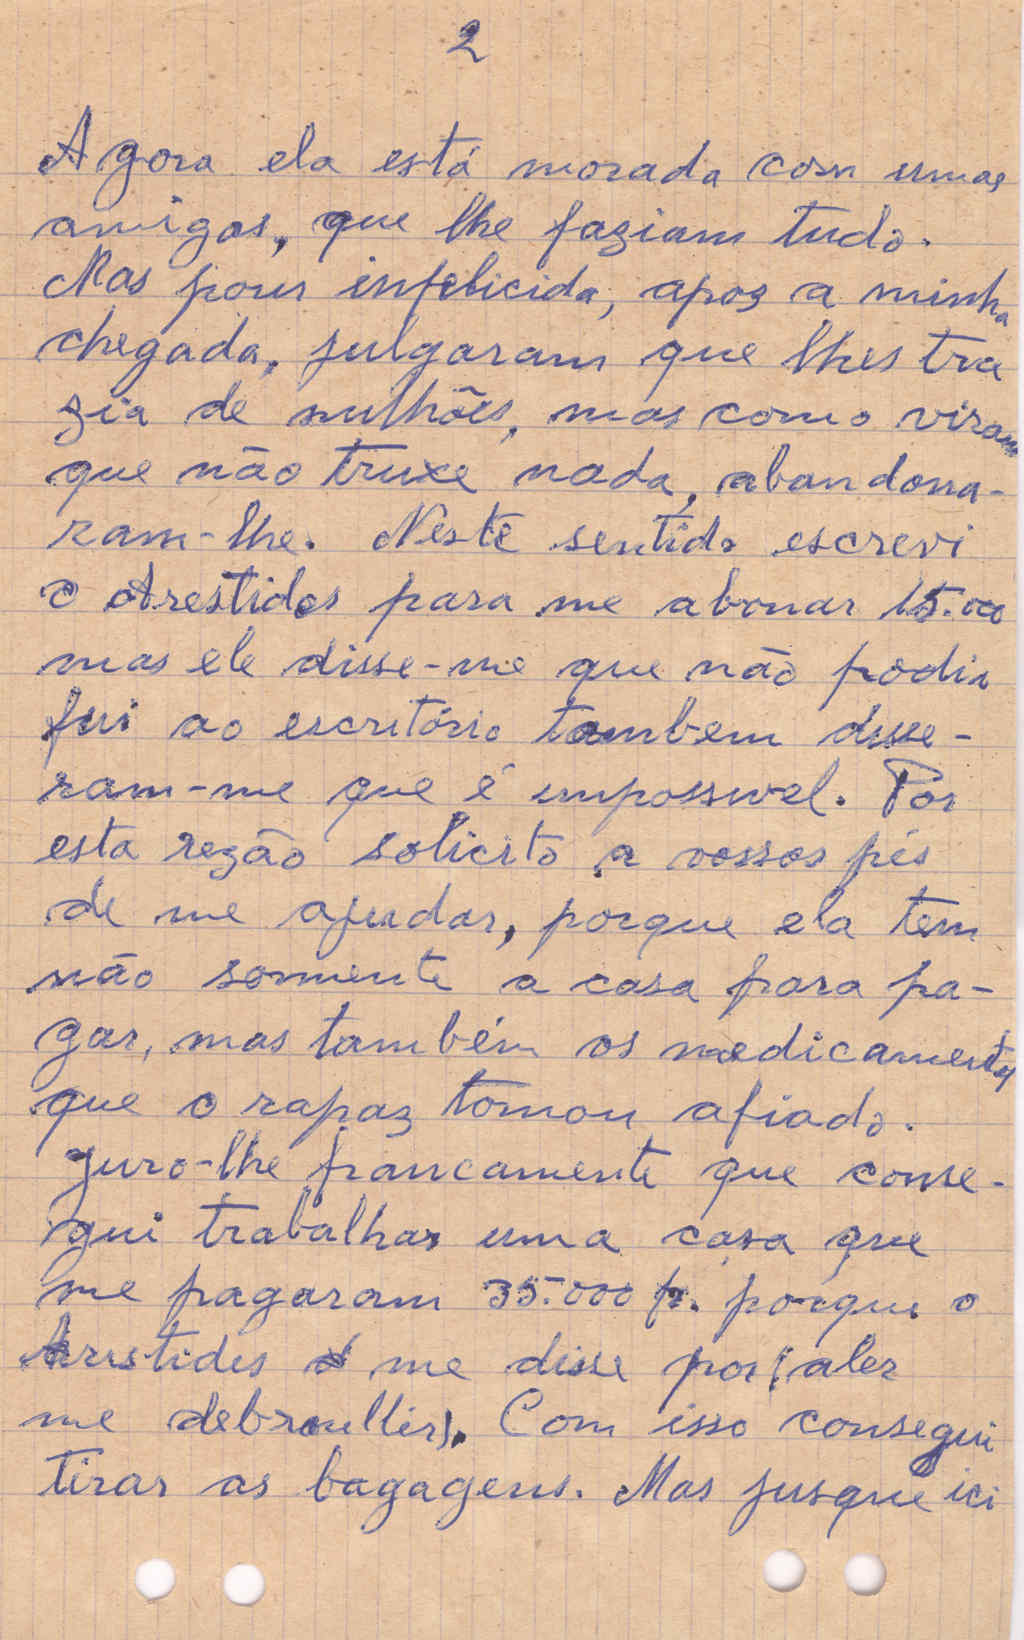 2
Agora ela está morada com umas
amigas, que lhe faziam tudo.
Mas pour infelicida, apoz a minha
chegada, julgaram que lhes tra
zia de milhões, mas como viram
que não truxe nada, abandona-
ram-lhe. Neste sentido escrevi
o Arestides para me abonar 15.000
mas ele disse-me que não podia
fui ao escritório tambem disse-
ram-me que é impossivel. Por
esta rezão solicito a vossos pés
de me ajudar, porque ela tem
não somente a casa para pa-
gar, mas também os medicamentos
que o rapaz tomou afiado.
Juro-lhe francamente que conse-
gui trabalhar uma casa que
me pagaram 35.000 fr. porque o
Arestides me disse por (aler
me debrouller). Com isso consegui
tirar as bagagens. Mas jusque ici